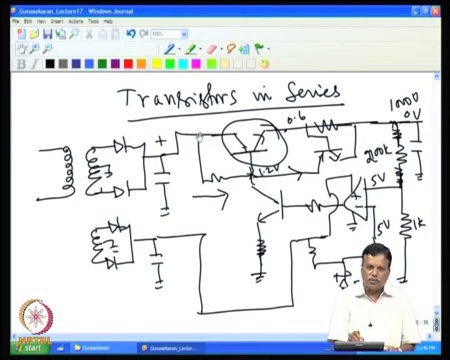 Gunasekaran_Lecture17 - Windows Journal
File Edit View Insert Actions Tools Help
100%
B I
Transistors in Series
1000V
0V
0.6
200k
1.2V
5V
5V
1k
start
Gunasekaran
Gunasekaran_Lectu...